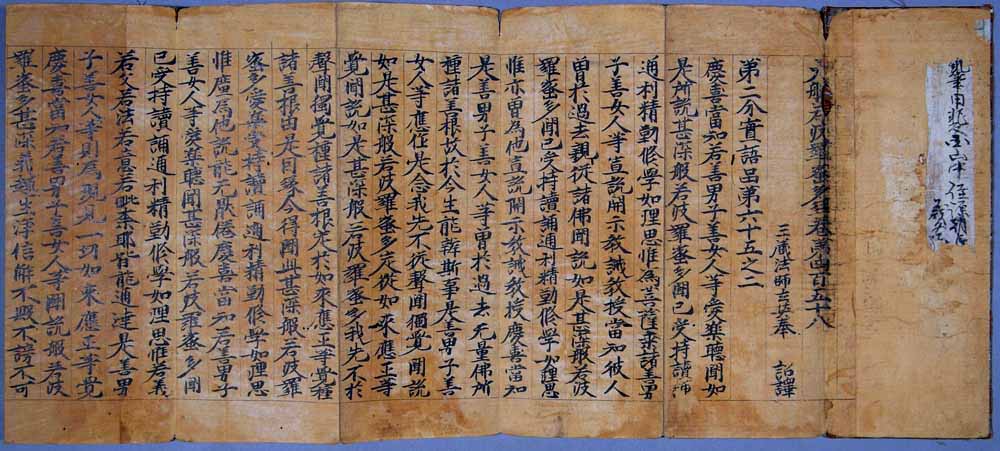 般若波羅蜜多經卷第四百五十八
三藏法師玄奘奉 詔譯
第二分實語品第六十五之二
慶喜當知若善男子善女人等愛樂聽聞如
是所說甚深般若波羅蜜多聞已受持讀誦
通利精勤修學如理思惟為菩薩乘諸善男
子善女人等宣說開示教誡教授當知彼人
曾於過去親從諸佛聞說如是甚深般若波
羅蜜多聞已受持讀誦通利精勤修學如理思
惟亦曾為他宣說開示教誡教授慶喜當知
是善男子善女人等曾於過去无量佛所
種諸善根故於今生能辦斯事是善男子善
女人等應作是念我先不從聲聞獨覺聞說
如是甚深般若波羅蜜多定從如來應正等
覺聞說如是甚深般若波羅蜜多我先不於
聲聞獨覺種諸善根定於如來應正等覺種
諸善根由是因緣今得聞此甚深般若波羅
蜜多愛樂受持讀誦通利精勤修學如理思
惟廣為他說能无厭倦慶喜當知若善男子
善女人等愛樂聽聞甚深般若波羅蜜多聞
已受持讀誦通利精勤修學如理思惟若義
若文若法若意若毗奈耶皆能通達是善男
子善女人等則為現見一切如來應正等覺
慶喜當知若善男子善女人等聞說般若波
羅蜜多甚深義趣生淨信解不毀不謗不可